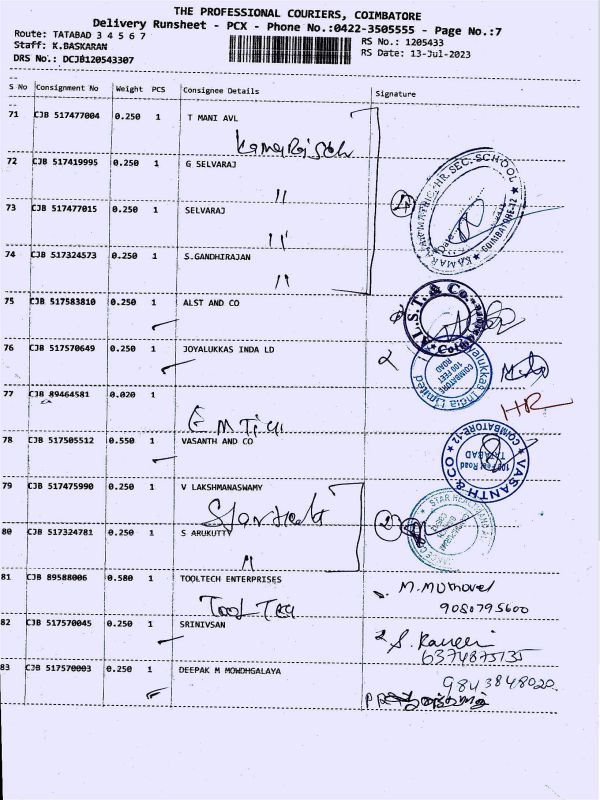 THE PROFESSIONAL COURIERS, COIMBATORE
Delivery Runsheet - PCX - Phone No.:0422-3505555 - Page No.:7
Route: TATABAD 3 4 5 6 7
Staff: K.BASKARAN
DRS No.: DCJB120543307
RS No.: 1205433
RS Date: 13-Jul-2023
S No Consignment No Weight PCS Consignee Details Signature
71 CJB 517477004 0.250 1 T MANI AVL
72 CJB 517419995 0.250 1 G SELVARAJ
"
73 CJB 517477015 0.250 1 SELVARAJ
"
74 CJB 517324573 0.250 1 S.GANDHIRAJAN
"
75 CJB 517583810 0.250 1 ALST AND CO
76 CJB 517570649 0.250 1 JOYALUKKAS INDA LD
77 CJB 89464581 0.020 1
HR
78 CJB 517505512 0.550 1 VASANTH AND CO
VASANTH & CO
TATABAD
COIMBATORE-12
79 CJB 517475990 0.250 1 V LAKSHMANASWAMY
80 CJB 517324781 0.250 1 S ARUKUTTY
"
81 CJB 89588006 0.580 1 TOOLTECH ENTERPRISES
M. Muthuvel
9080795600
82 CJB 517570045 0.250 1 SRINIVSAN
6374875135
83 CJB 517570003 0.250 1 DEEPAK M MOWDHGALAYA
9843848020